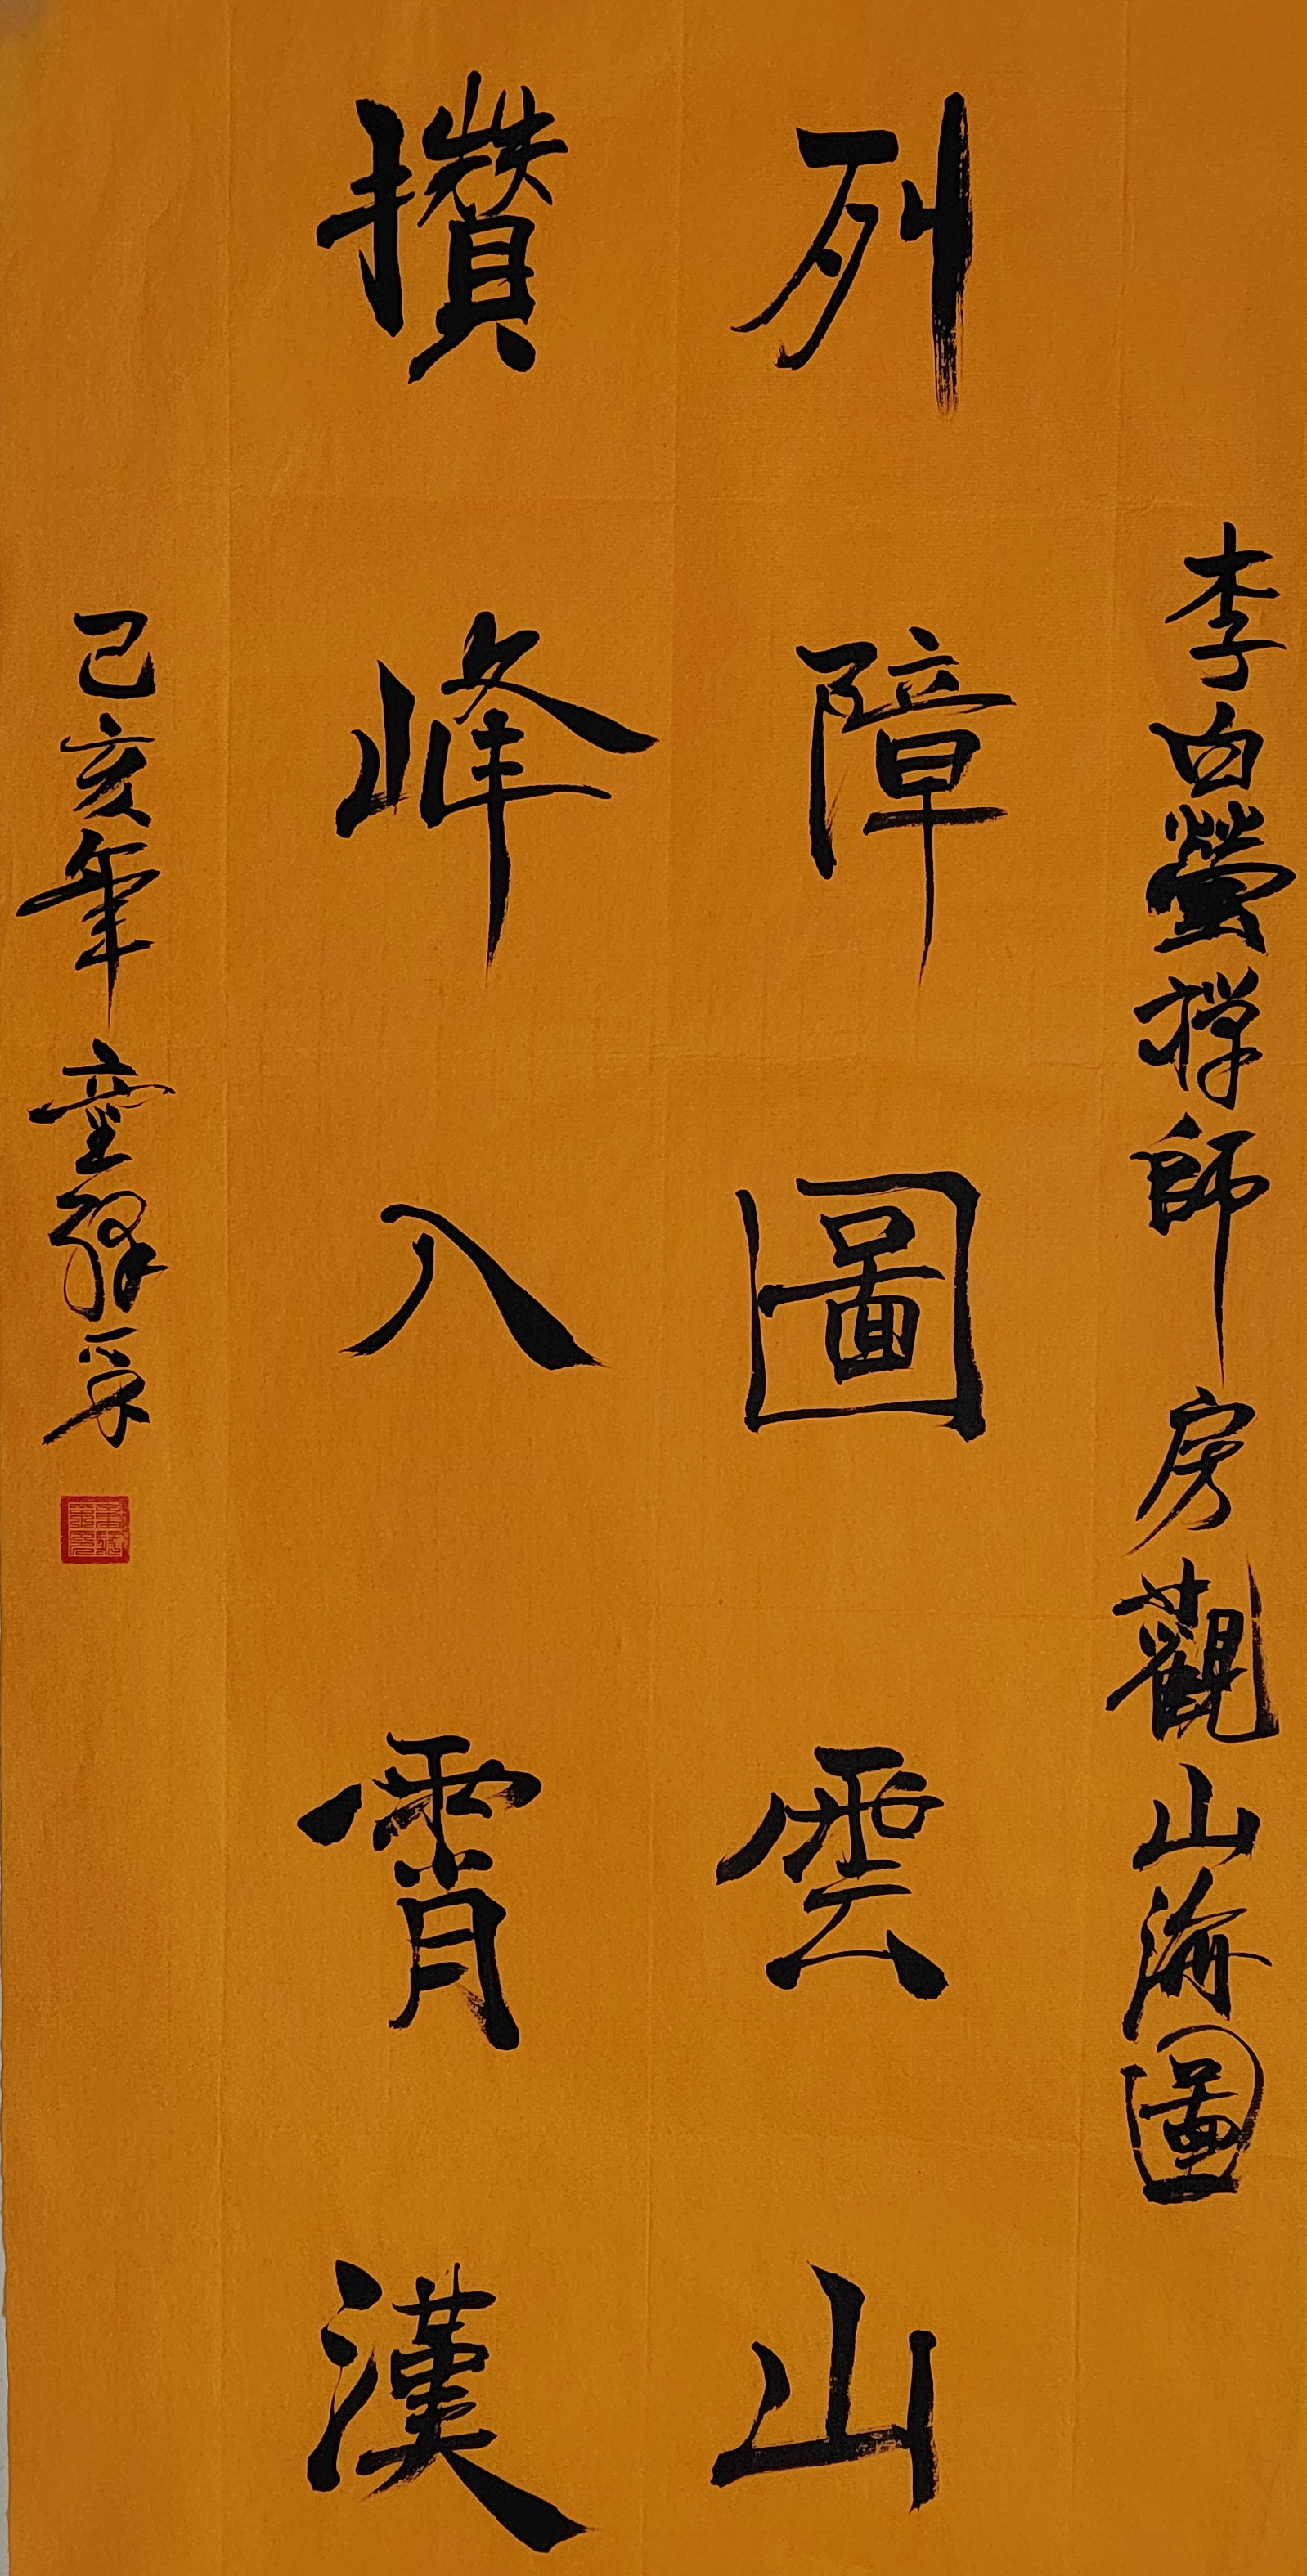 李白瑩禅師房觀山海圖
列障圖雲山
攢峰入霄漢
己亥年 童